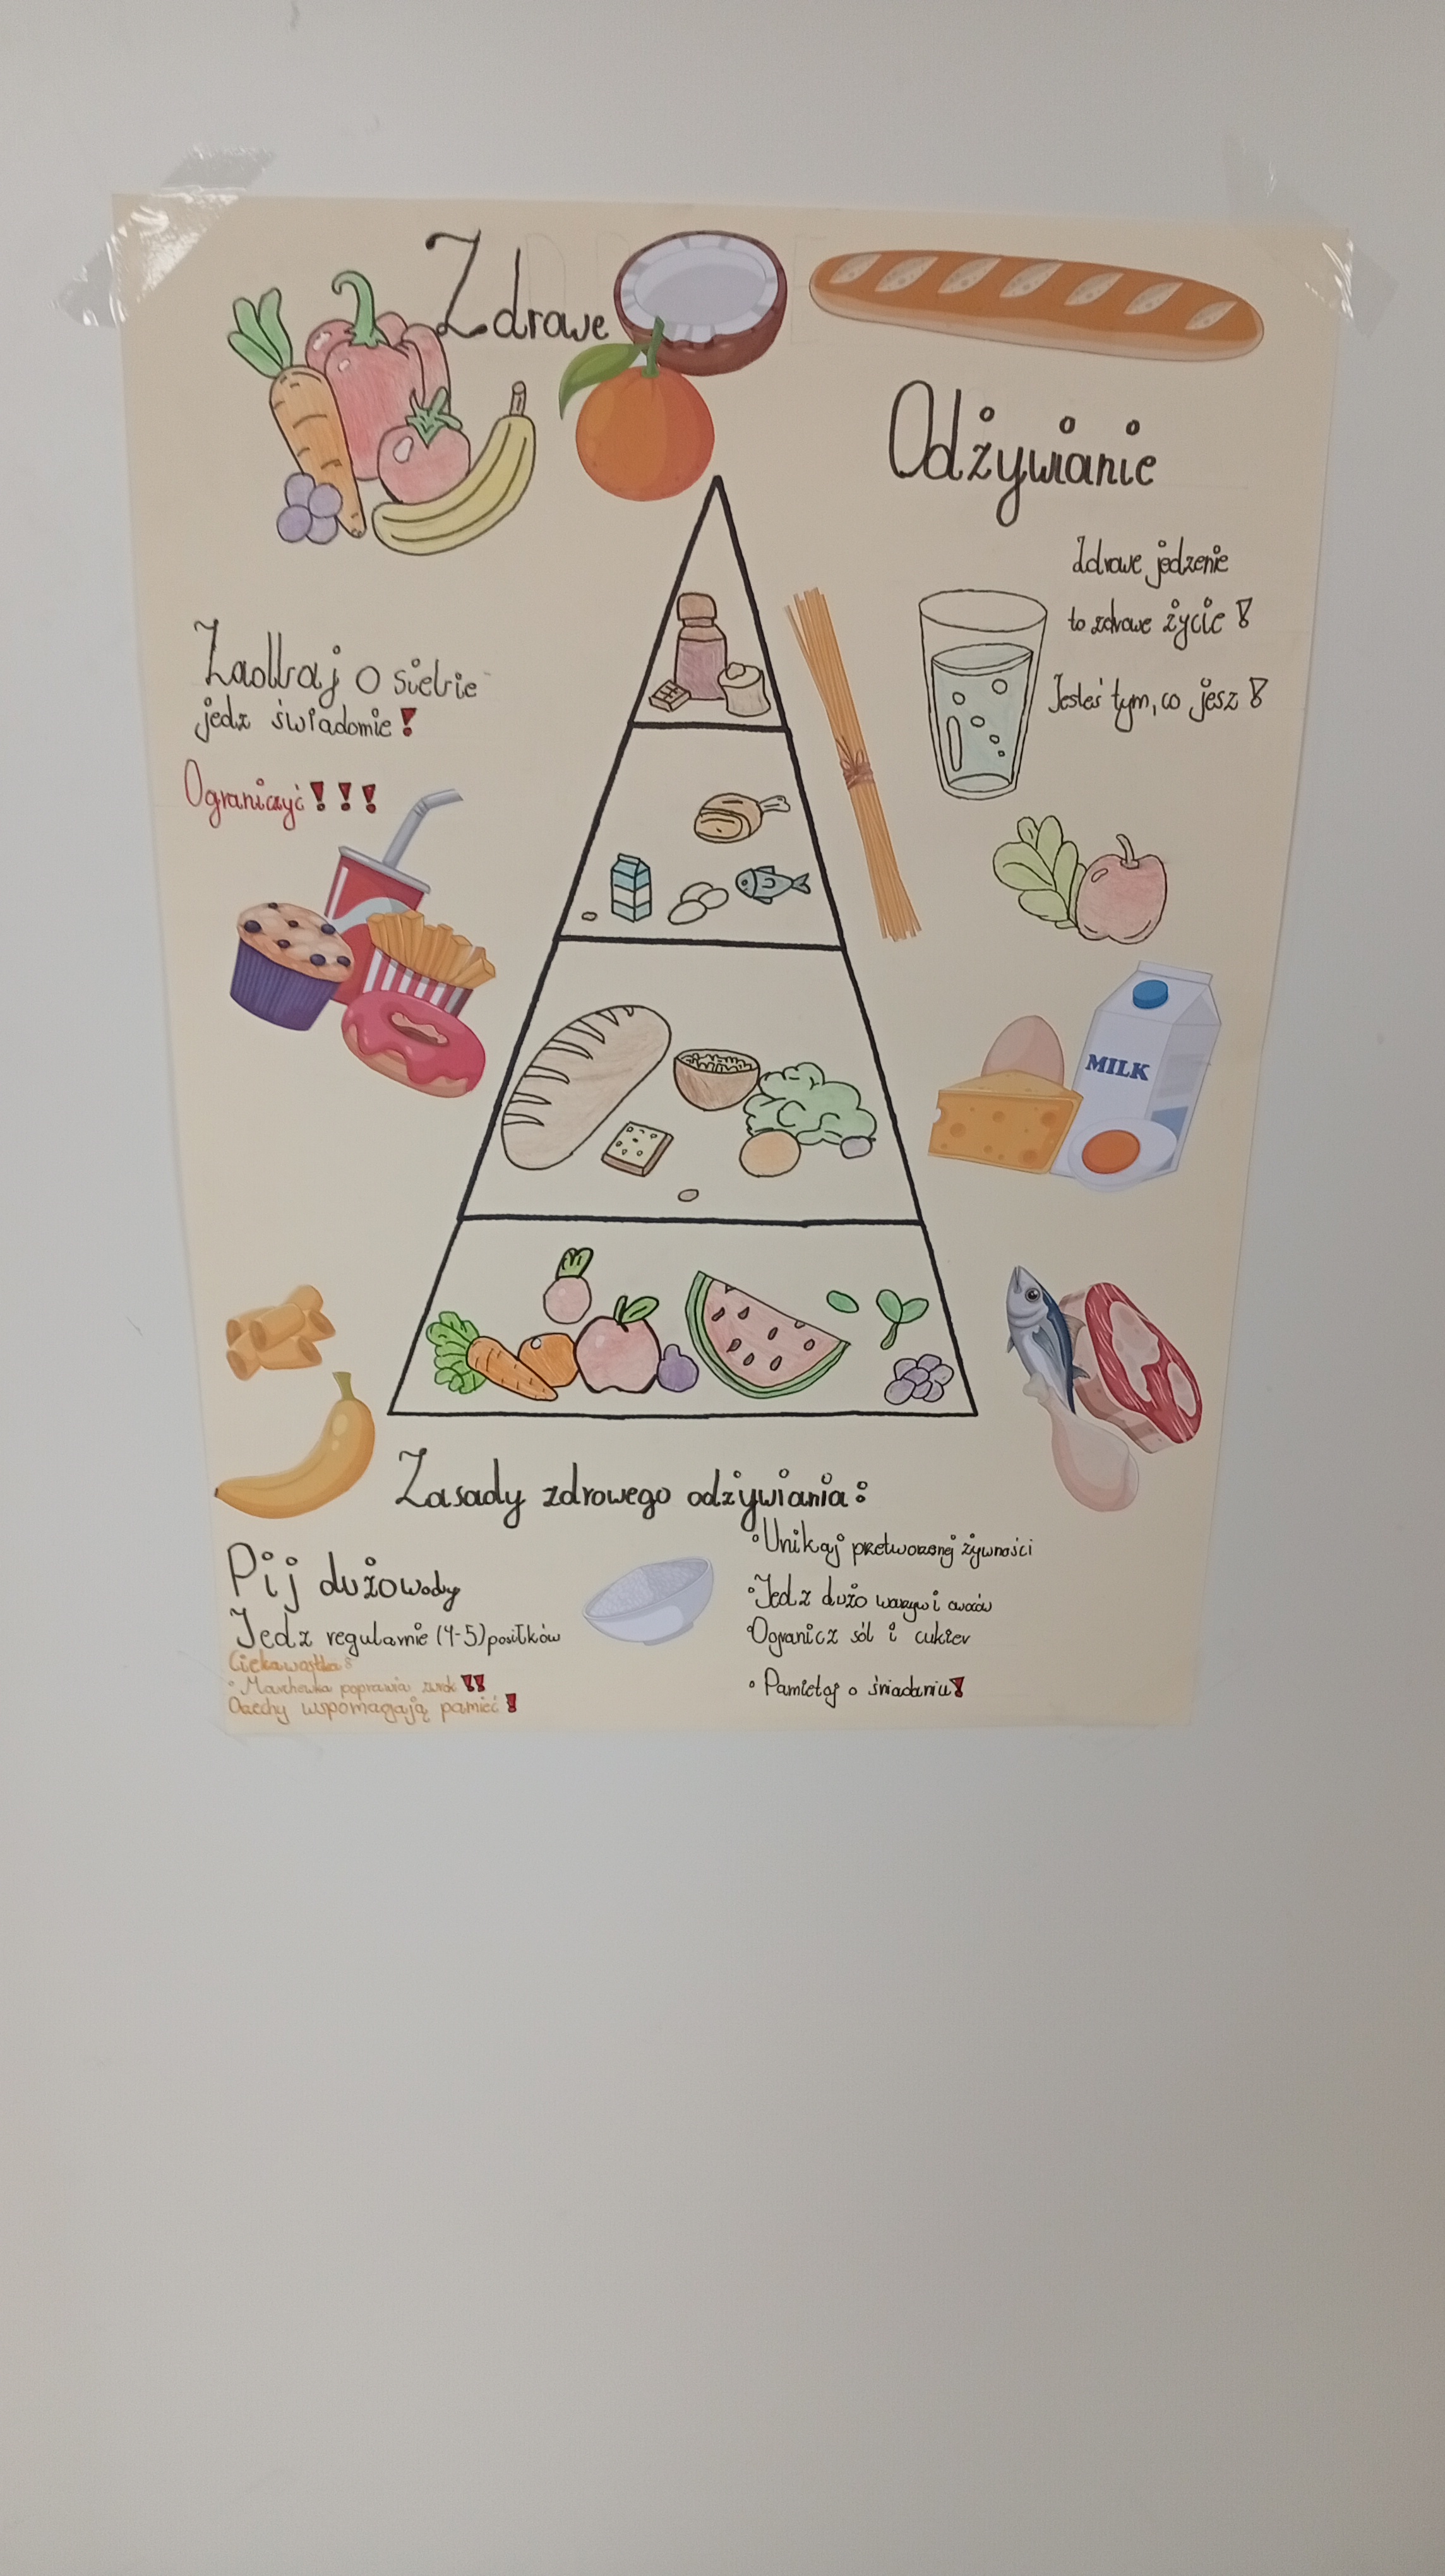 Zdrowe
Odżywianie
Zdrowe jedzenie
to zdrowe życie!
Jesteś tym, co jesz!
Zadbaj o siebie
jedz świadomie!
Ograniczyć!!!
MILK
Zasady zdrowego odżywiania:
Pij dużo wody
Jedz regularnie (4-5) posiłków
Ciekawostka:
• Marchewka poprawia wzrok!!
Orzechy wspomagają pamięć!
• Unikaj przetworzonej żywności
• Jedz dużo warzyw i owoców
• Ogranicz sól i cukier
• Pamiętaj o śniadaniu!